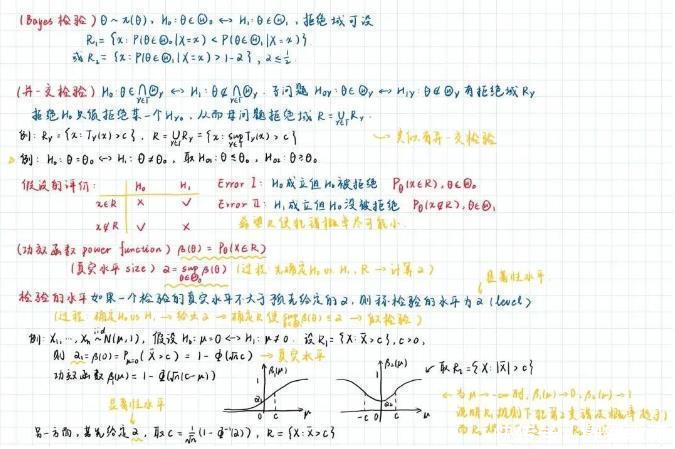 (Bayes 检验) θ ~ π(θ), H₀: θ∈Θ₀ ↔ H₁: θ∈Θ₁, 拒绝域可设
R₁ = {x: P(θ∈Θ₀|X=x) < P(θ∈Θ₁|X=x)}
或 R₂ = {x: P(θ∈Θ₁|X=x) > 1-α}, α≤½
(并-交检验) H₀: θ∈⋂Θγ ↔ H₁: θ∉⋂Θγ. 子问题 H₀γ: θ∈Θγ ↔ H₁γ: θ∉Θγ 有拒绝域 Rγ
拒绝 H₀ 只须拒绝某一个 Hγ₀, 从而母问题拒绝域 R = ⋃Rγ.
例: Rγ = {x: Tγ(x) > c}, R = ⋃Rγ = {x: sup Tγ(x) > c} → 类似有并-交检验
例: H₀: θ=θ₀ ↔ H₁: θ≠θ₀, 取 H₀₁: θ≤θ₀, H₀₂: θ≥θ₀
假设的评价: H₀ H₁ Error I: H₀ 成立但 H₀ 被拒绝 Pθ(x∈R), θ∈Θ₀
x∈R × ✓ Error II: H₁ 成立但 H₀ 没被拒绝 Pθ(x∉R), θ∈Θ₁
x∉R ✓ × 希望 R 使犯错概率尽可能小
(功效函数 power function) β(θ) = Pθ(X∈R)
(真实水平 size) α = sup β(θ) (过程: 先确定 H₀ vs H₁, R → 计算 α)
显著性水平
检验的水平 如果一个检验的真实水平不大于预先给定的 α, 则称检验的水平为 α (level)
(过程: 确定 H₀ vs H₁ → 给出 α → 确定 R 使 sup β(θ) ≤ α → 取检验)
例: X₁, …, Xₙ iid~ N(μ,1), 假设 H₀: μ=0 ↔ H₁: μ≠0. 设 R₁ = {X: X̄>c}, c>0,
则 α₁ = β(0) = Pμ=0(X̄>c) = 1 - Φ(√n c) → 真实水平
功效函数 β(μ) = 1 - Φ(√n(c-μ))
β₁(μ) 1 α₁ 0 c μ
β₂(μ) 1 α₂ -c 0 c μ
✓ 取 R₂ = {X: |X̄|>c}
← 当 μ→-∞ 时, β₁(μ)→0, β₂(μ)→1
显著性水平
说明 R₁ 规则下犯第2类错误概率
另一方面, 若先给定 α, 取 c = 1/√n (1-Φ⁻¹(α)), R = {X: X̄>c}